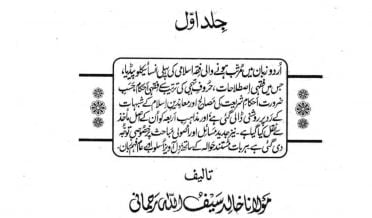 جلد اوّل
اُردو زبان میں مرتب ہونے والی فقہ اسلامی کی پہلی انسائیکلوپیڈیا،
جس میں فقہی اصطلاحات، حروفِ تہجی کی ترتیب سے فقہی احکام، حسبِ
ضرورت احکام شریعت کی مصالح اور معاندینِ اسلام کے شبہات
کے رد پر روشنی ڈالی گئی ہے اور مذاہب اربعہ کو اُن کے اصل مآخذ
سے نقل کیا گیا ہے۔ نیز جدید مسائل اور اُصولی مباحث پر خصوصی توجہ
دی گئی ہے، ہر بات مستند حوالہ کے ساتھ دل آویز اسلوب اور عام فہم زبان۔
تالیف
مولانا خالد سیف اللہ رحمانی